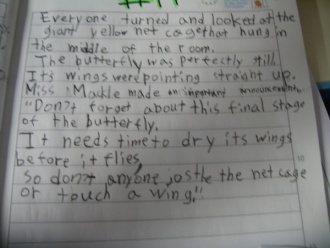 Everyone turned and looked at the
giant yellow net cage that hung in
the middle of the room.
The butterfly was perfectly still.
Its wings were pointing straight up.
Miss Mackle made an important announcement,
"Don't forget about this final stage
of the butterfly.
It needs time to dry its wings
before it flies,
so don't anyone jostle the net cage
or touch a wing."